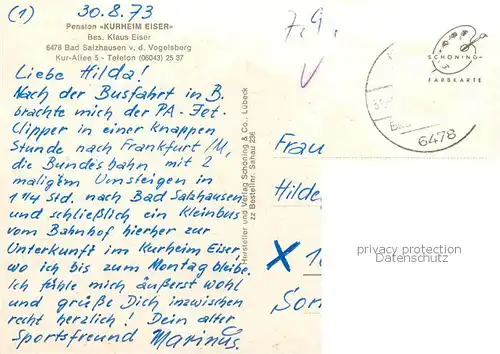 (1) 30.8.73
Pension «KURHEIM EISER»
Bes. Klaus Eiser
6478 Bad Salzhausen v. d. Vogelsberg
Kur-Allee 5 - Telefon (06043) 25 37
Liebe Hilda!
Nach der Busfahrt in B.
brachte mich der PA-Jet-
Clipper in einer knappen
Stunde nach Frankfurt/M,
die Bundesbahn mit 2
maligem Umsteigen in
1 1/4 Std. nach Bad Salzhausen
und schließlich ein Kleinbus
vom Bahnhof hierher zur
Unterkunft im Kurheim Eiser,
wo ich bis zum Montag bleibe.
Ich fühle mich äußerst wohl
und grüße Dich inzwischen
recht herzlich! Dein alter
Sportsfreund Marinus.
Hersteller und Verlag Schöning & Co., Lübeck
zz Bestellnr. Sahau 236
7.9.
V
SCHÖNING
FARBKARTE
6478
Frau
Hilde
X 10
Son
privacy protection
Datenschutz